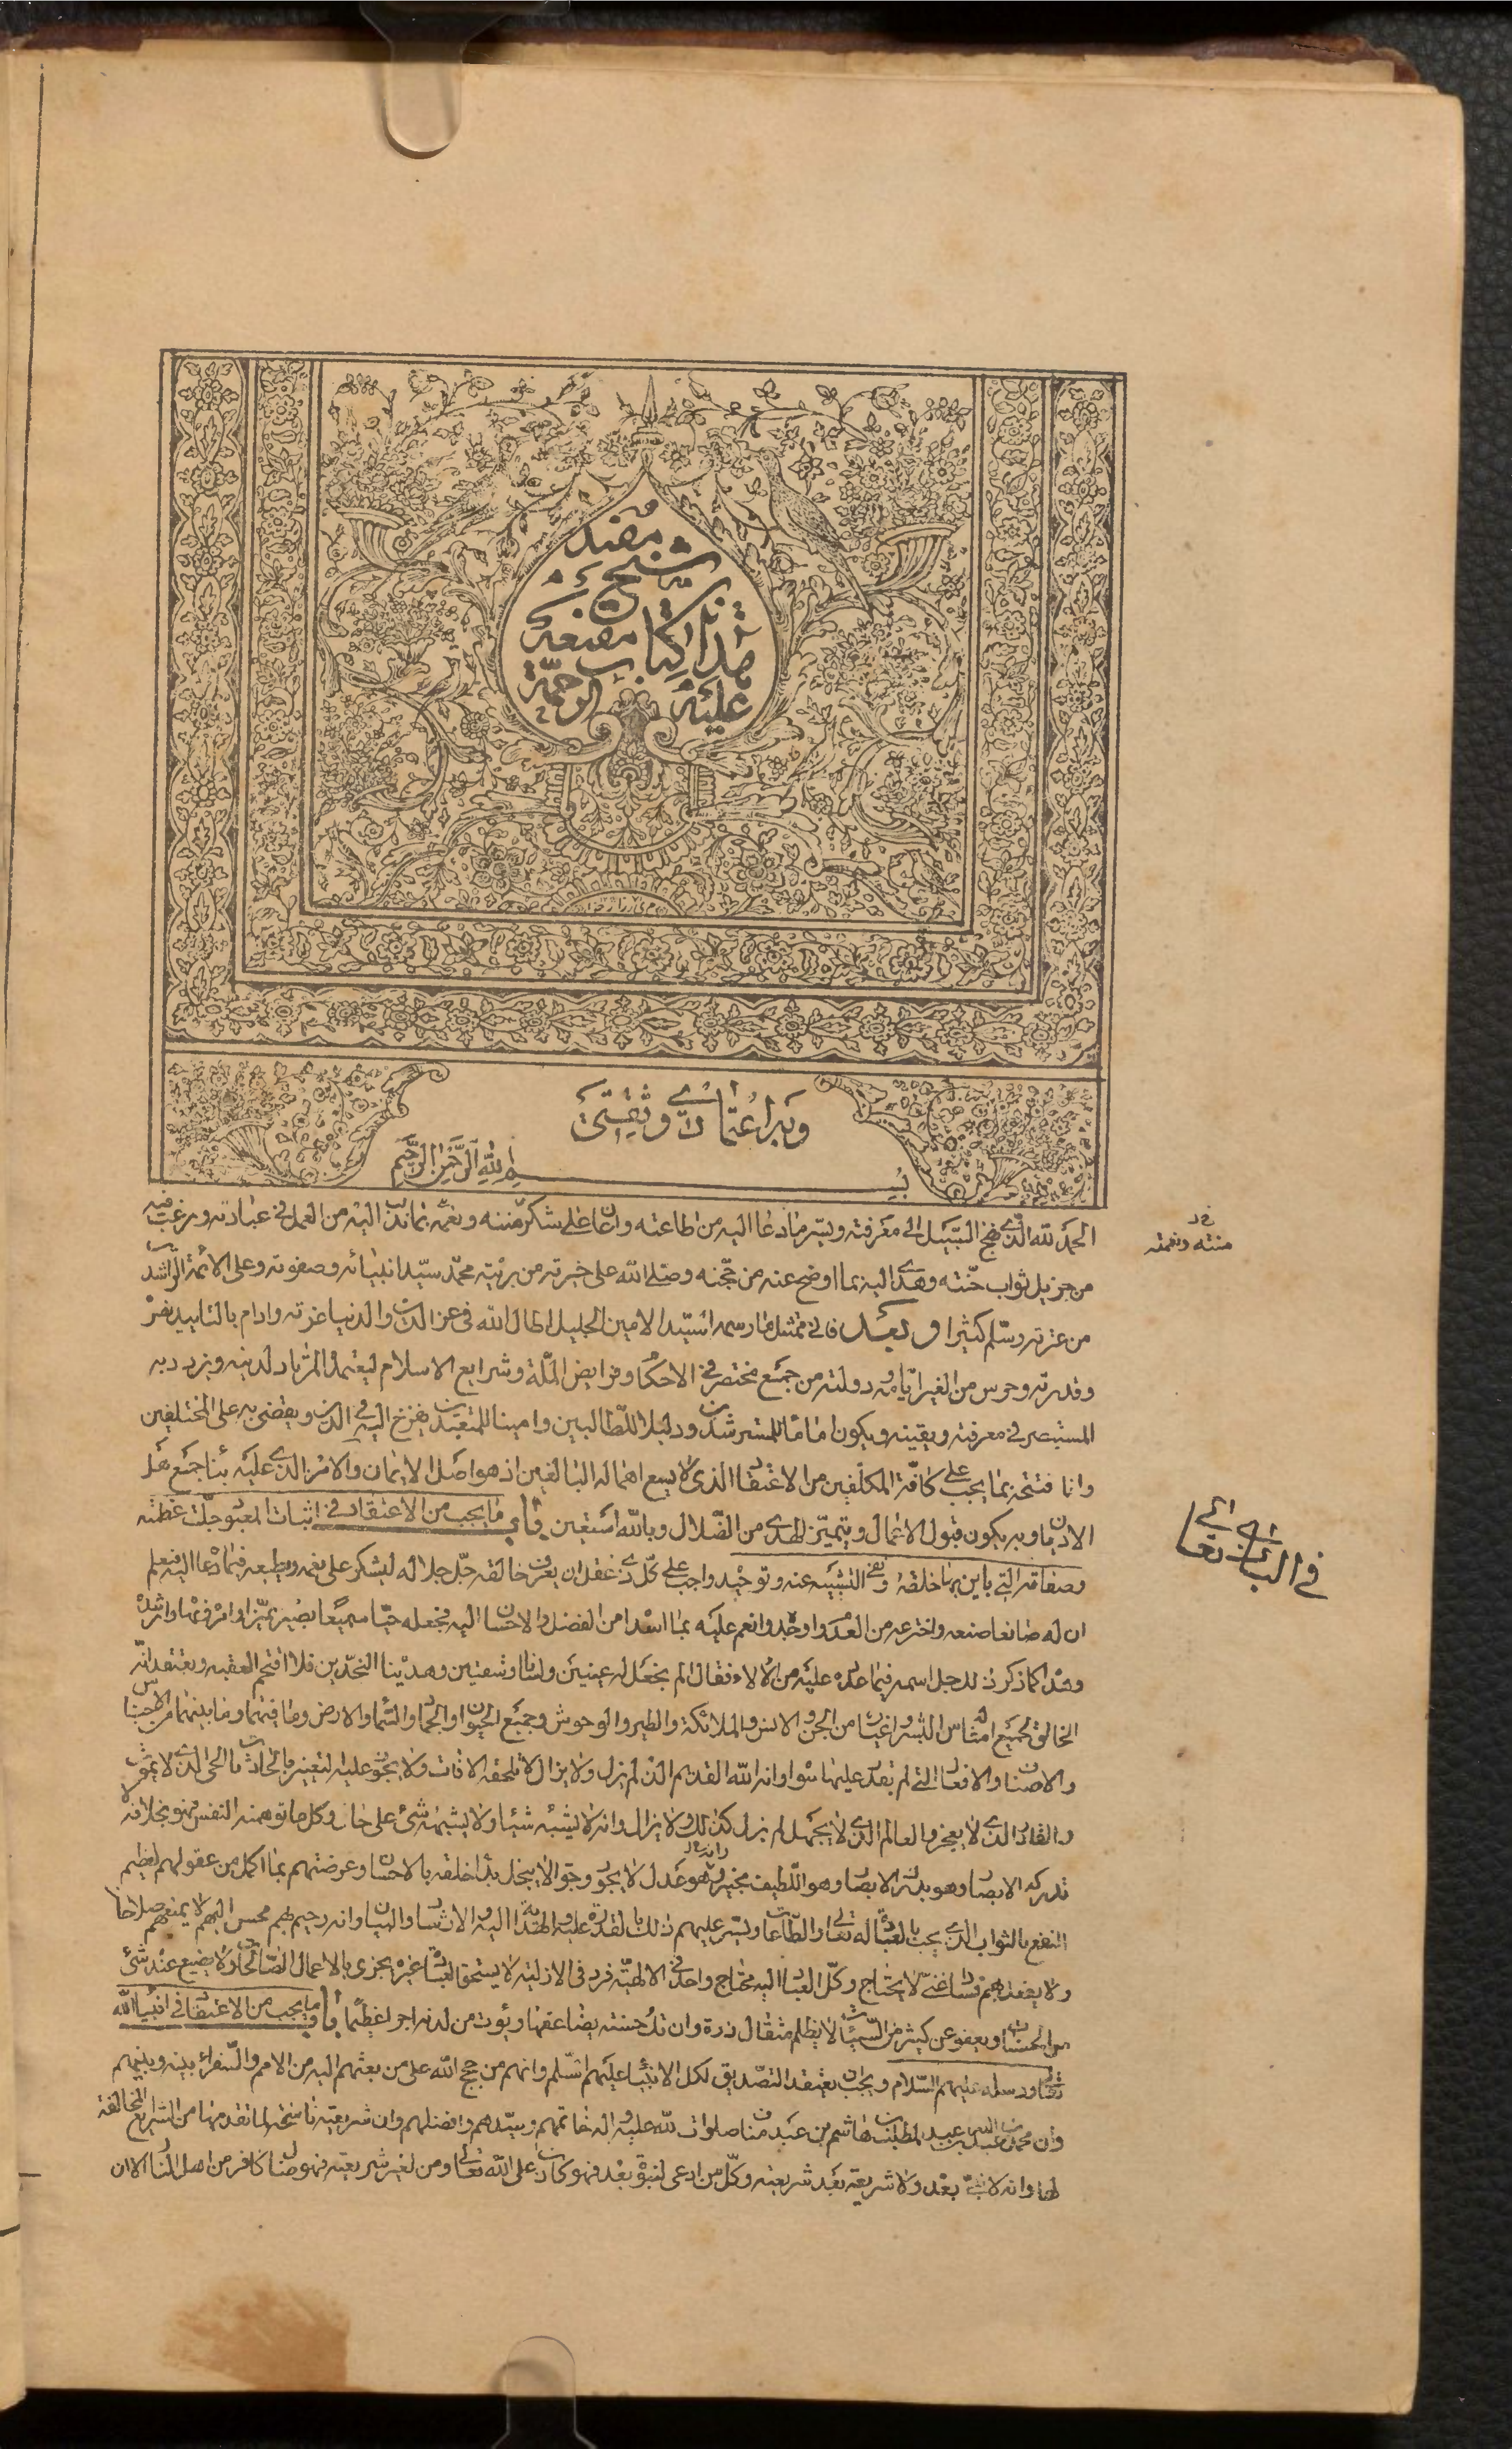 هذا كتاب مقنعه
شيخ مفيد
عليه الرحمة
وبه اعتمادي وثقتي
بسم الله الرحمن الرحيم
الحمد لله الذي نهج السبيل الى معرفته ويسر ما دعا اليه من طاعته واعان على شكر مننه ونعمه بما ندب اليه من العمل في عبادته ورغب فيه
من جزيل ثواب جنته وهدى اليه بما اوضح عنه من حججه وصلى الله على خيرته من بريته محمد سيد انبيائه وصفوته وعلى الائمة الراشدين
من عترته وسلم كثيرا وبعد فاني ممتثل ما رسمه السيد الامين الجليل اطال الله في عز الدين والدنيا عزته وادام بالتاييد نصره
وقدرته وحرس من الغير ايامه ودولته من جمع مختصر في الاحكام وفرايض الملة وشرايع الاسلام ليعتمده المرتاد لدينه ويزداد به
المستبصر في معرفته ويقينه ويكون اماما للمسترشدين ودليلا للطالبين وامينا للمتعبدين يفزع اليه في الدين ويقضي به على المختلفين
وانا افتتحه بما يجب على كافة المكلفين من الاعتقاد الذي لا يسع اهماله البالغين اذ هو اصل الايمان والامر الذي عليه بنا جميع اهل
الاديان وبه يكون قبول الاعمال ويتميز الهدى من الضلال وبالله استعين باب ما يجب من الاعتقاد في اثبات المعبود جلت عظمته
وصفاته التي باين بها خلقه ونفي التشبيه عنه وتوحيده واجب على كل ذي عقل ان يعرف خالقه جل جلاله ليشكره على نعمه ويطيعه فيما دعاه اليه فيعلم
ان له صانعا صنعه واخترعه من العدم واوجده وانعم عليه بما اسداه من الفضل والاحسان اليه فجعله حيا سميعا بصيرا مميزا وامره ونهاه وارشده
وهداه كما ذكر ذلك جل اسمه فيما عدده عليه من الالاء فقال الم نجعل له عينين ولسانا وشفتين وهديناه النجدين فلا اقتحم العقبه ويعتقد انه
الخالق لجميع امثاله من البشر واغياره من الجن والانس والملائكة والطير والوحوش وجميع الحيوان والجماد والسماء والارض وما فيهما وما بينهما من الاجناس
والاصناف والافعال التي لم يقدر عليها سواه وانه الله القديم الذي لم يزل ولا يزال لا تلحقه الافات ولا يجوز عليه التغيير بالحادثات الحي الذي لا يموت
والقادر الذي لا يعجز والعالم الذي لا يجهل لم يزل كذلك ولا يزال وانه لا يشبه شيئا ولا يشبهه شيء على حال وكل ما توهمته النفس فهو بخلافه لا
تدركه الابصار وهو يدرك الابصار وهو اللطيف الخبير وانه عدل لا يجور وجواد لا يبخل بدا خلقه بالاحسان وعرضهم بما اكمل من عقولهم لعظيم
النفع بالثواب الذي يجب بالعبادة له تعالى والطاعات ويسر عليهم ذلك بالقدرة عليه والهداية اليه والارشاد والبيان وانه رحيم بهم محسن اليهم لا يمنعهم صلاحا
ولا يفعل بهم فسادا غني لا يحتاج وكل العباد اليه محتاج واحد في الالهية فرد في الازلية لا يستحق العبادة غيره يجزي بالاعمال الصالحات ولا يضيع عنده شيء
من الحسنات ويعفو عن كثير من السيئات لا يظلم مثقال ذرة وان تك حسنة يضاعفها ويؤت من لدنه اجرا عظيما باب ما يجب من الاعتقاد في انبياء الله
تعالى ورسله عليهم السلام ويجب ان يعتقد التصديق لكل الانبياء عليهم السلم وانهم من حجج الله على من بعثهم اليه من الامم والسفراء بينه وبينهم
وان محمد بن عبد الله بن عبد المطلب بن هاشم بن عبد مناف صلوات الله عليه واله خاتمهم وسيدهم وافضلهم وان شريعته ناسخة لما تقدمها من الشرايع المخالفة
لها وانه لا نبي بعده ولا شريعة بعد شريعته وكل من ادعى النبوة بعده فهو كاذب على الله تعالى ومن لغير شريعته فهو ضال كافر من اهل النار الا ان
منته ونعمته
في الباري تعالى